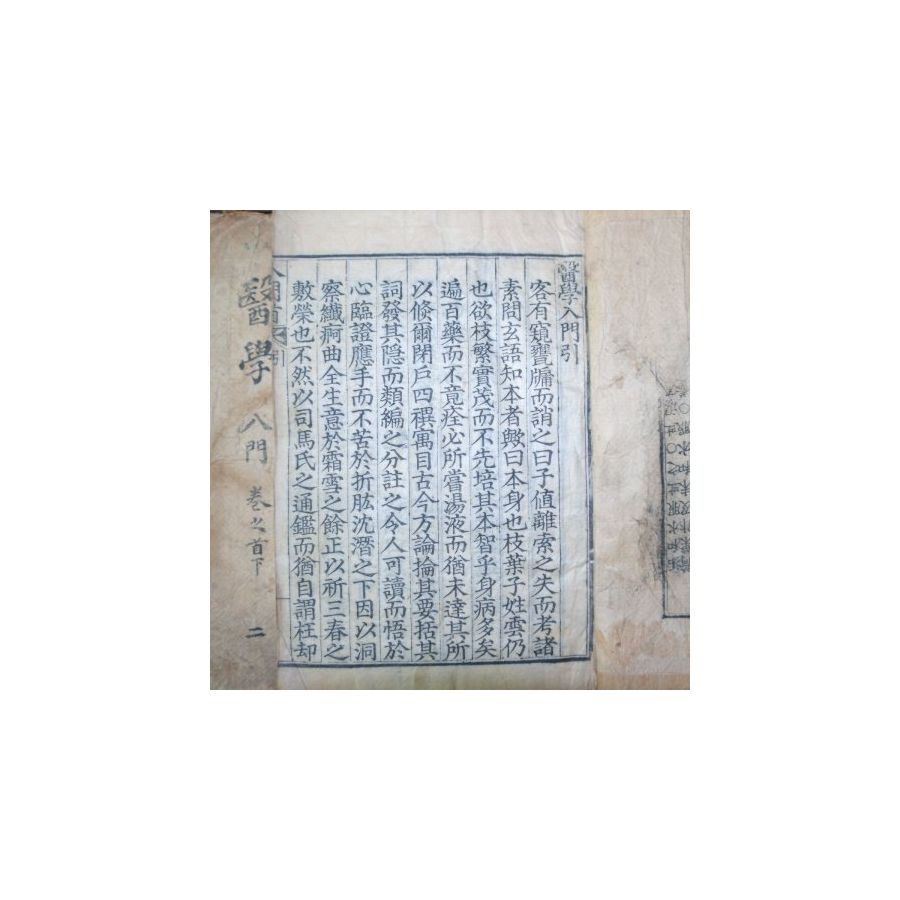 醫學入門引
客有窺甕牖而誚之曰子値離索之失而考諸
素問玄語知本者歟曰本身也枝葉子姓雲仍
也欲枝繁實茂而不先培其本智乎身病多矣
遍百藥而不竟痊必所嘗湯液而猶未達其所
以倐爾閉戶四禩寓目古今方論掄其要括其
詞發其隱而類編之分註之令人可讀而悟於
心臨證應手而不苦於折肱沈潛之下因以洞
察纖痾曲全生意於霜雪之餘正以祈三春之
敷榮也不然以司馬氏之通鑑而猶自謂枉却
入門首 引
醫學 入門 卷之首下 二